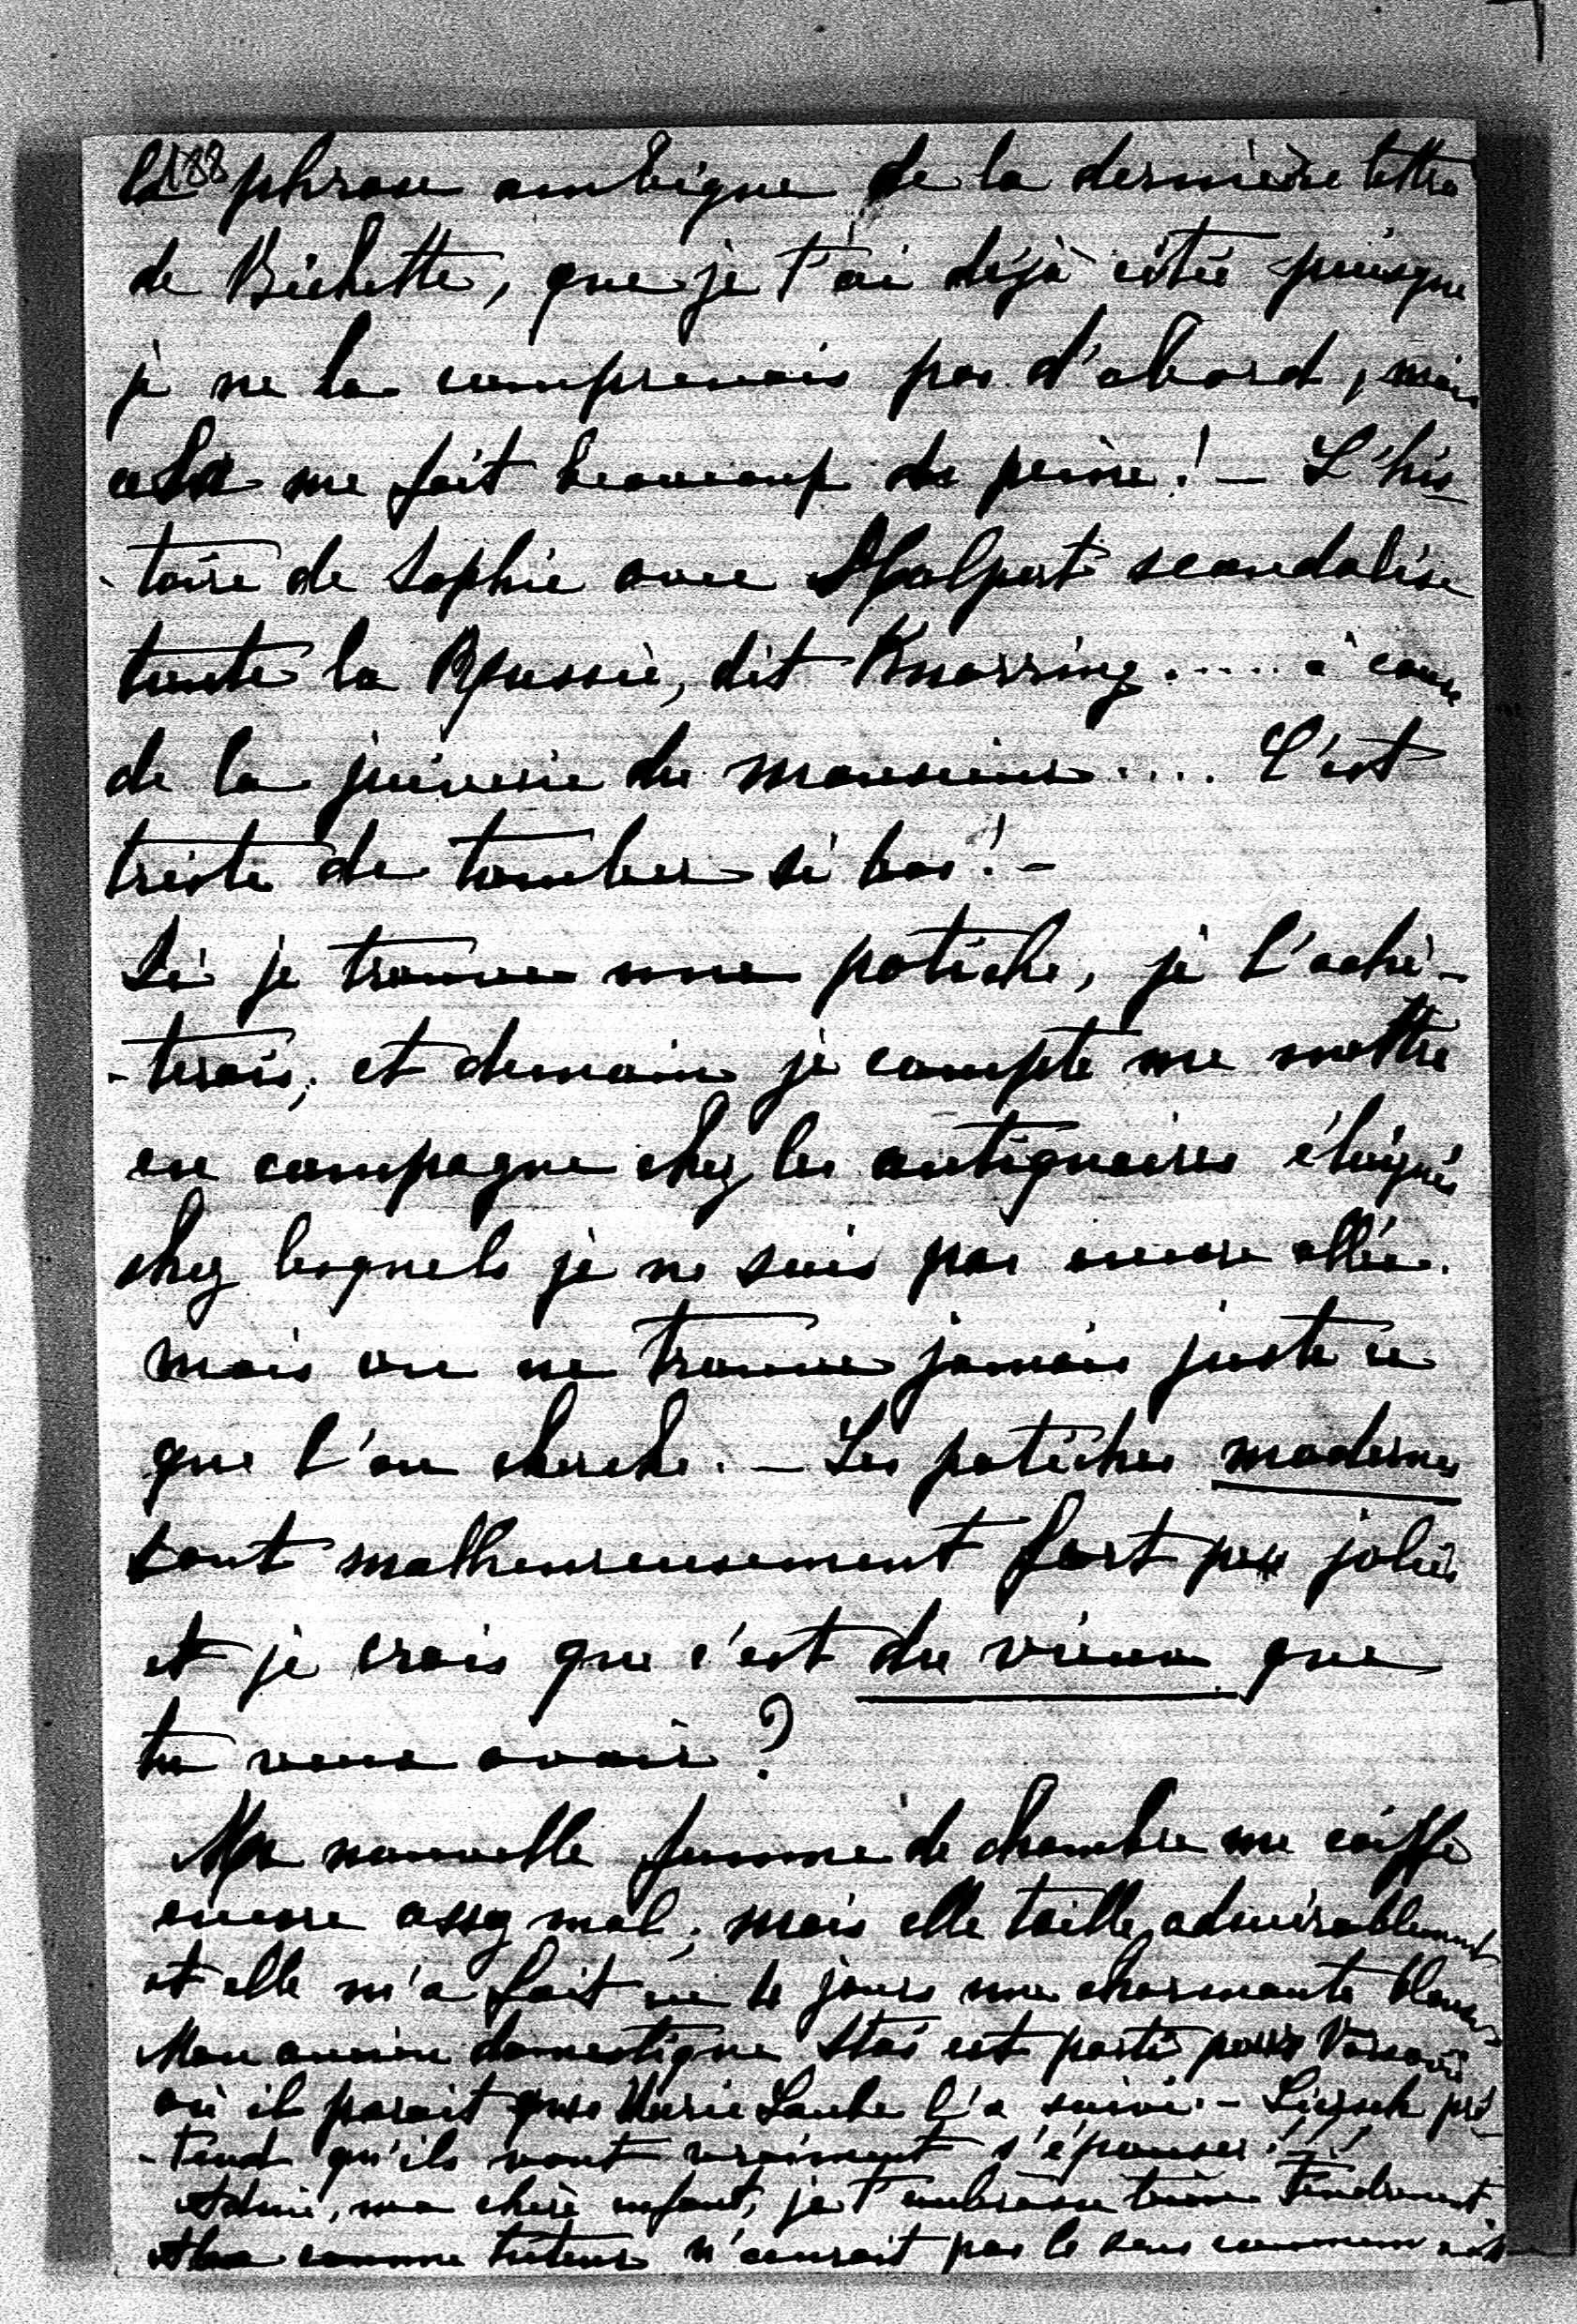 188
la phrase ambigue de la dernière lettre
de Bichette, que je t'ai déjà citée puisque
je ne la comprenais pas d'abord, mais
cela me fait beaucoup de peine! — L'his
-toire de Sophie avec Malpert scandalise
toute la Russie, dit Knorring..... à cause
de la juiverie du monsieur.... C'est
triste de tomber si bas! —
Si je trouve une potiche, je l'achè-
-terais, et demain je compte me mettre
en campagne chez les antiquaires éloignés
chez lesquels je ne suis pas encore allée.
mais on ne trouve jamais juste ce
que l'on cherche. — Les potiches modernes
sont malheureusement fort peu jolies
et je crois que c'est du vieux que
tu veux avoir?
Ma nouvelle femme de chambre me coiffe
encore assez mal; mais elle taille admirablement
et elle m'a fait en 4 jours une charmante blouse
Mon ancien domestique Stas est parti pour Varsovie
où il parait que Marie l'a suivi. — pré
-tend qu'ils vont vraiment s'épouser!!!
Adieu, ma chère enfant, je t'embrasse bien tendrement.
comme tuteur n'aurait pas le sens commun